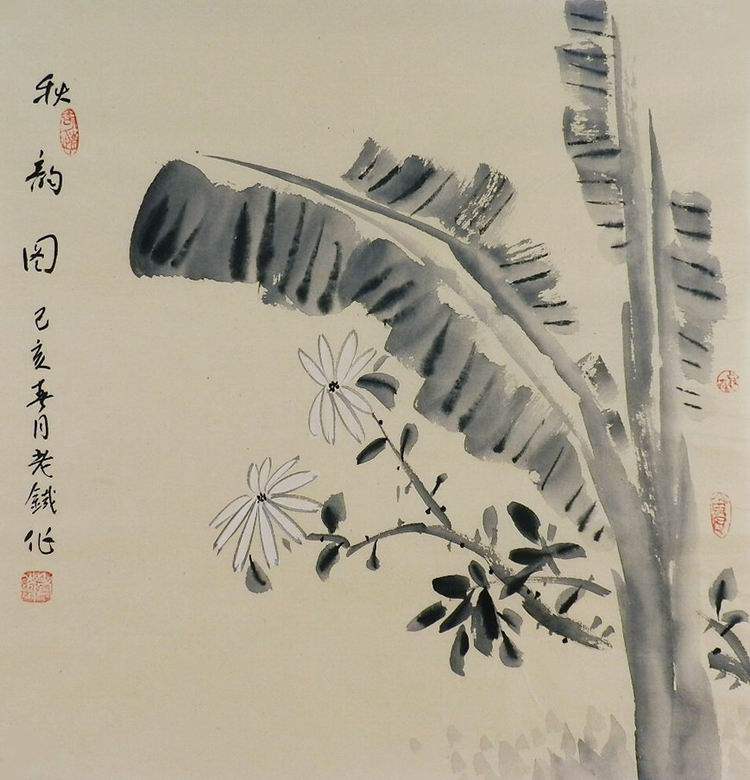 秋韵图
己亥春月老鐵作